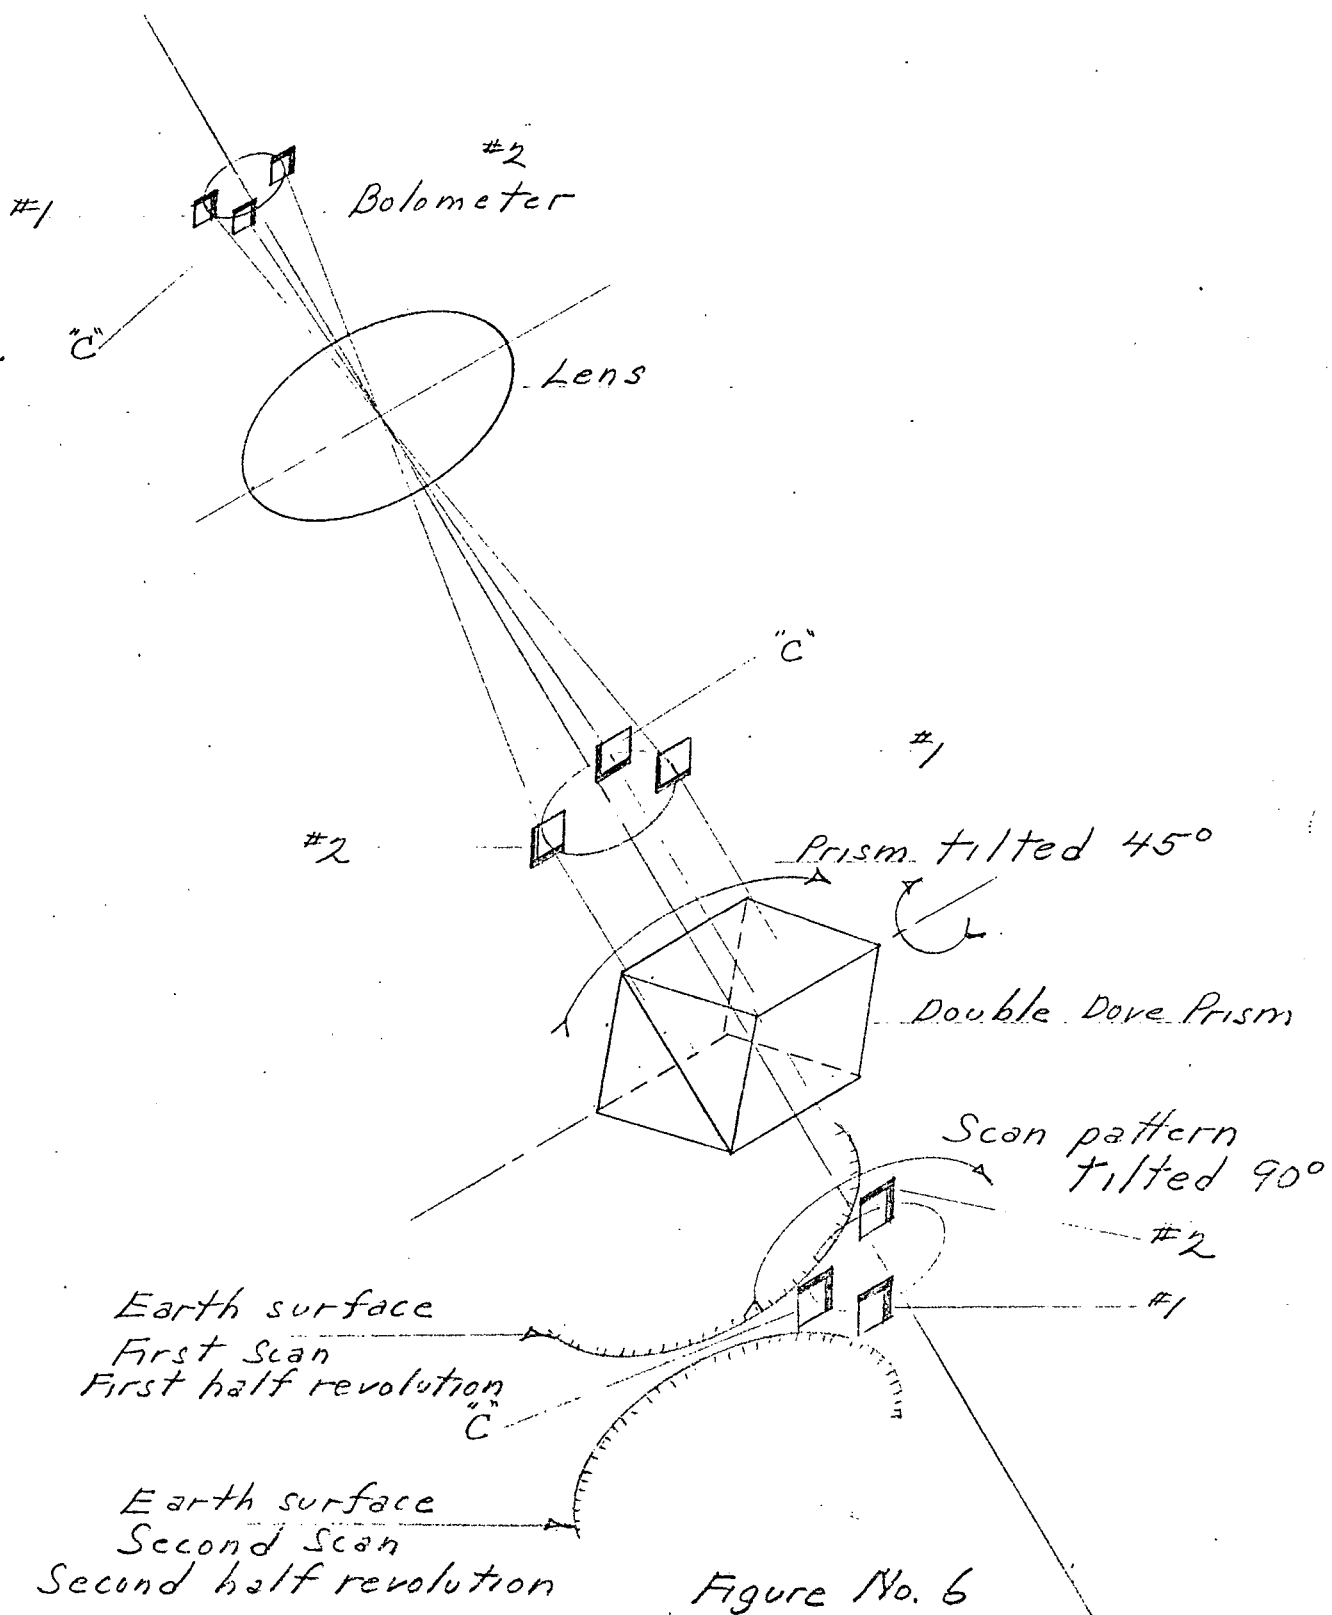 #2
#1
Bolometer
"C"
Lens
"C"
#1
#2
Prism tilted 45°
Double Dove Prism
Scan pattern
tilted 90°
#2
#1
Earth surface
First Scan
First half revolution
"C"
Earth surface
Second Scan
Second half revolution
Figure No. 6